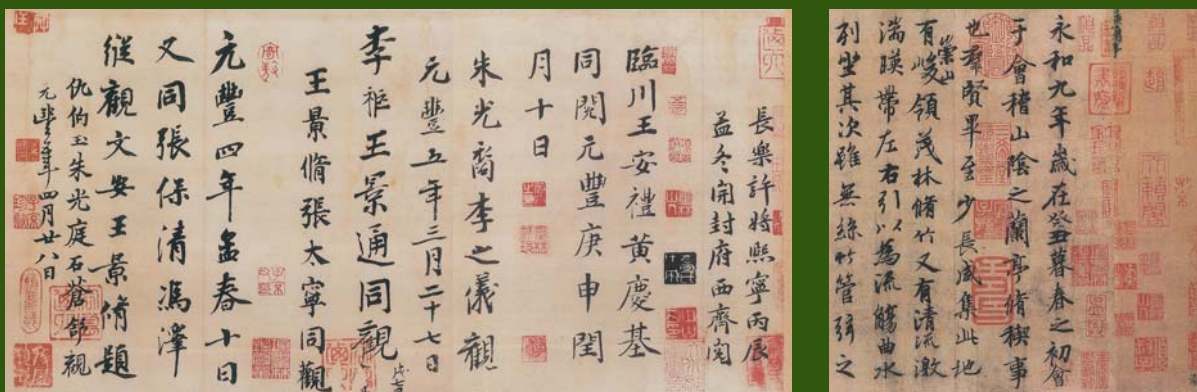 永和九年歲在癸丑暮春之初會
于會稽山陰之蘭亭脩稧事
也羣賢畢至少長咸集此地
有崇山峻領茂林脩竹又有清流激
湍暎帶左右引以為流觴曲水
列坐其次雖無絲竹管弦之
長樂許將熙寧丙辰
孟冬開封府西齋閱
臨川王安禮黃慶基
同閱元豐庚申閏
月十日
朱光裔李之儀觀
元豐五年三月二十七日
李秬王景通同觀
王景脩張太寧同觀
元豐四年孟春十日
又同張保清馮澤
縱觀文安王景脩題
仇伯玉朱光庭石蒼舒觀
元豐年四月廿八日